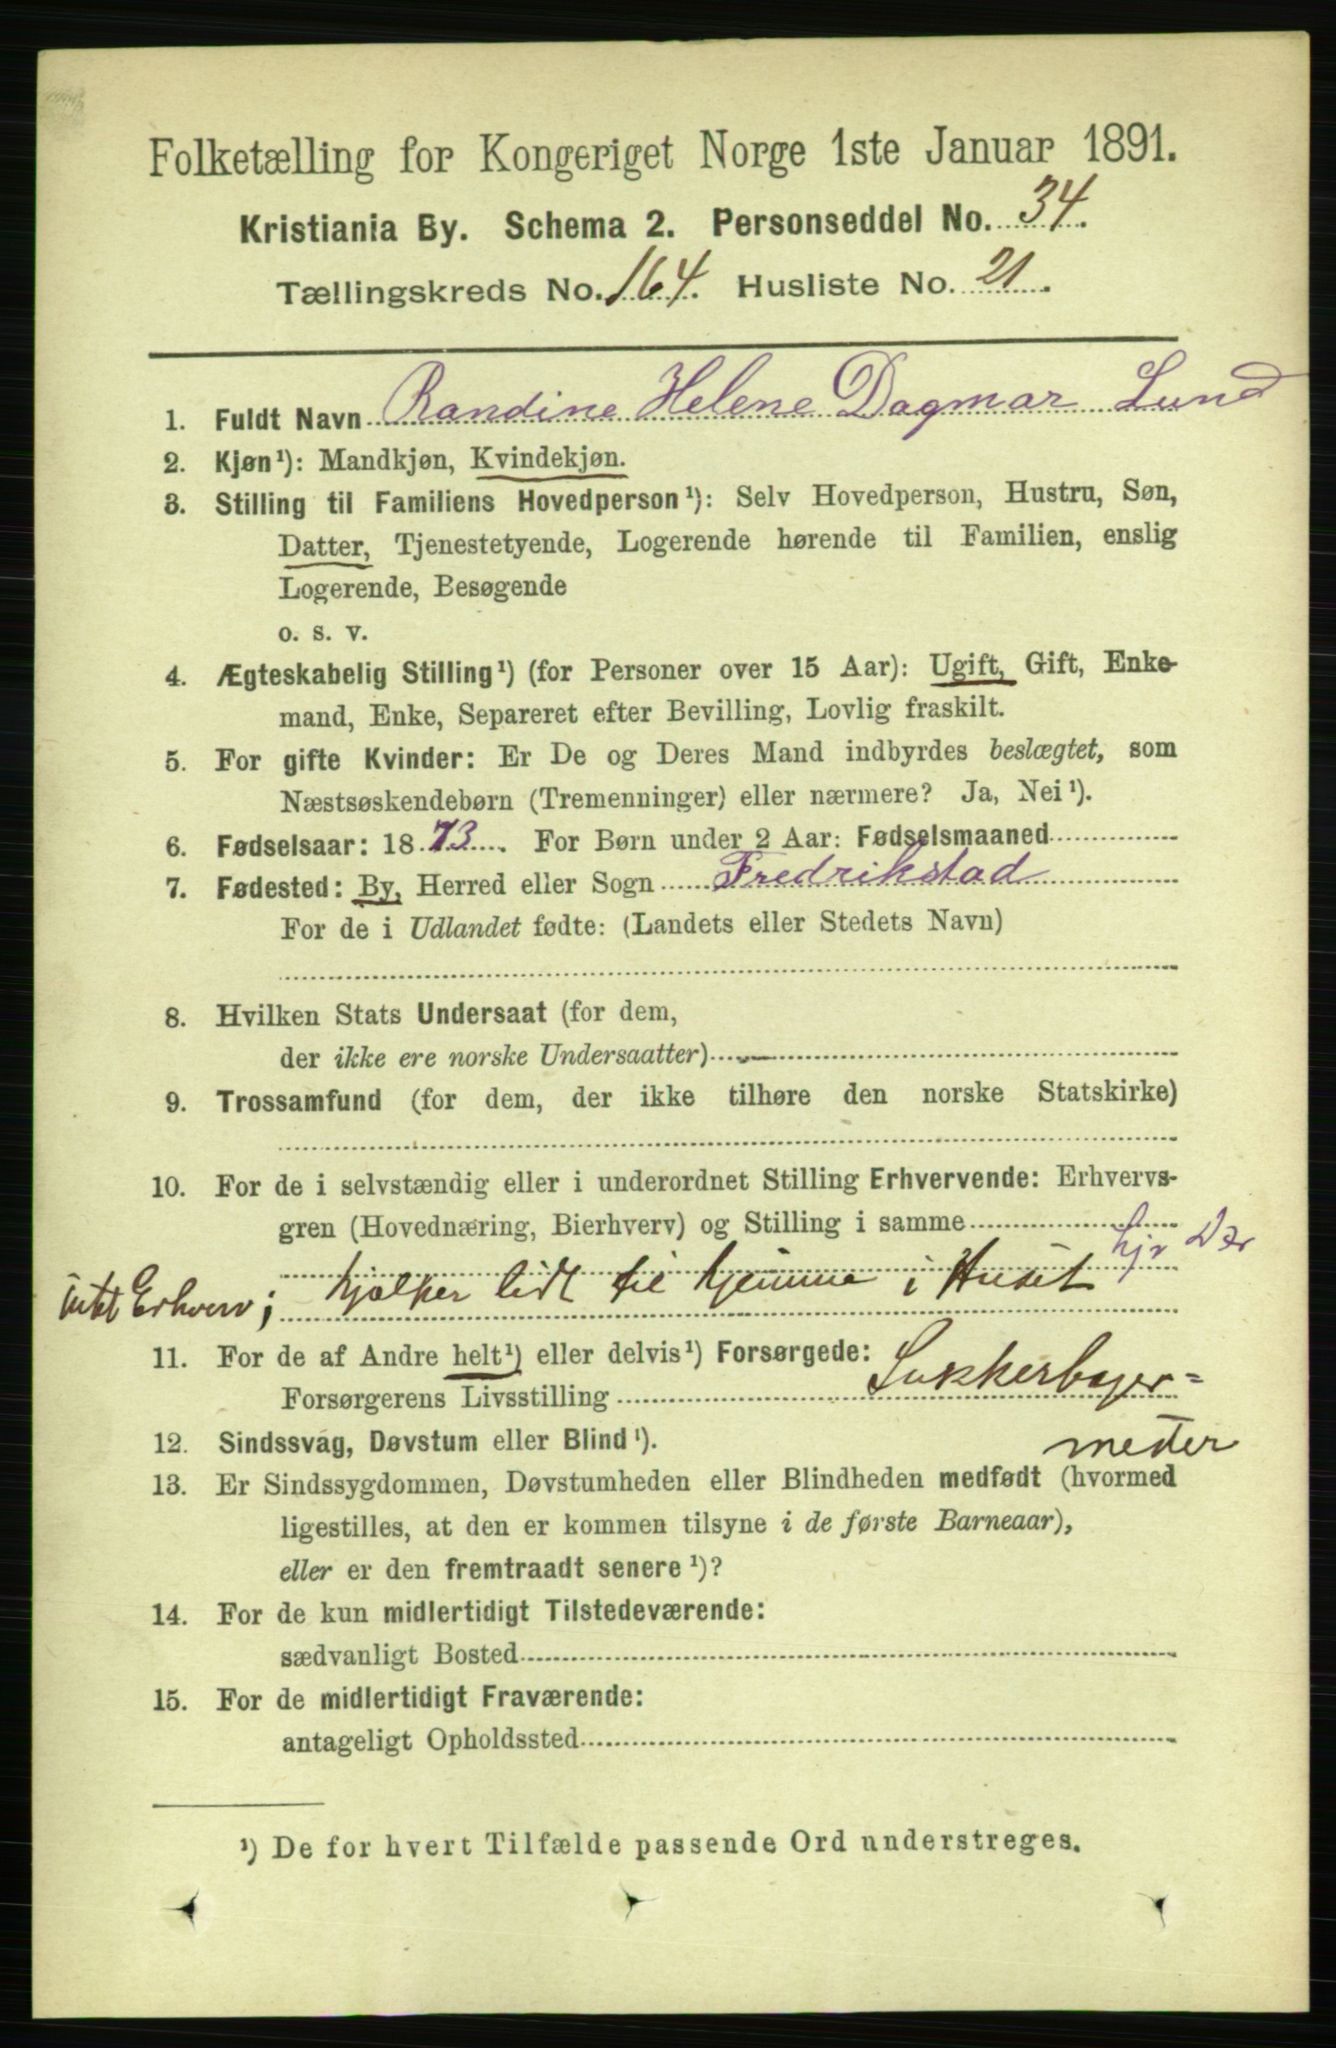 Folketælling for Kongeriget Norge 1ste Januar 1891.
Kristiania By. Schema 2. Personseddel No. 34.
Tællingskreds No. 164. Husliste No. 21.
1. Fuldt Navn Randine Helene Dagmar Lund
2. Kjøn¹): Mandkjøn, Kvindekjøn.
3. Stilling til Familiens Hovedperson¹): Selv Hovedperson, Hustru, Søn,
Datter, Tjenestetyende, Logerende hørende til Familien, enslig
Logerende, Besøgende
o. s. v.
4. Ægteskabelig Stilling¹) (for Personer over 15 Aar): Ugift, Gift, Enke-
mand, Enke, Separeret efter Bevilling, Lovlig fraskilt.
5. For gifte Kvinder: Er De og Deres Mand indbyrdes beslægtet, som
Næstsøskendebørn (Tremenninger) eller nærmere? Ja, Nei¹).
6. Fødselsaar: 1873. For Børn under 2 Aar: Fødselsmaaned
7. Fødested: By, Herred eller Sogn Fredrikstad
For de i Udlandet fødte: (Landets eller Stedets Navn)
8. Hvilken Stats Undersaat (for dem,
der ikke ere norske Undersaatter)
9. Trossamfund (for dem, der ikke tilhøre den norske Statskirke)
10. For de i selvstændig eller i underordnet Stilling Erhvervende: Erhvervs-
gren (Hovednæring, Bierhverv) og Stilling i samme
hjv Der
intet Erhverv; hjælper lidt til hjemme i Huset
11. For de af Andre helt¹) eller delvis¹) Forsørgede:
Forsørgerens Livsstilling Sukkerbager=
mester
12. Sindssvag, Døvstum eller Blind¹).
13. Er Sindssygdommen, Døvstumheden eller Blindheden medfødt (hvormed
ligestilles, at den er kommen tilsyne i de første Barneaar),
eller er den fremtraadt senere¹)?
14. For de kun midlertidigt Tilstedeværende:
sædvanligt Bosted
15. For de midlertidigt Fraværende:
antageligt Opholdssted
¹) De for hvert Tilfælde passende Ord understreges.